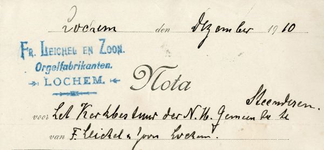 Lochem den Dezember 1910
FR. LEICHEL EN ZOON.
Orgelfabrikanten.
LOCHEM.
Nota
Steenderen.
voor Het Kerkbestuur der N. H. Gemeente te
van F. Leichel & Zoon Lochem.